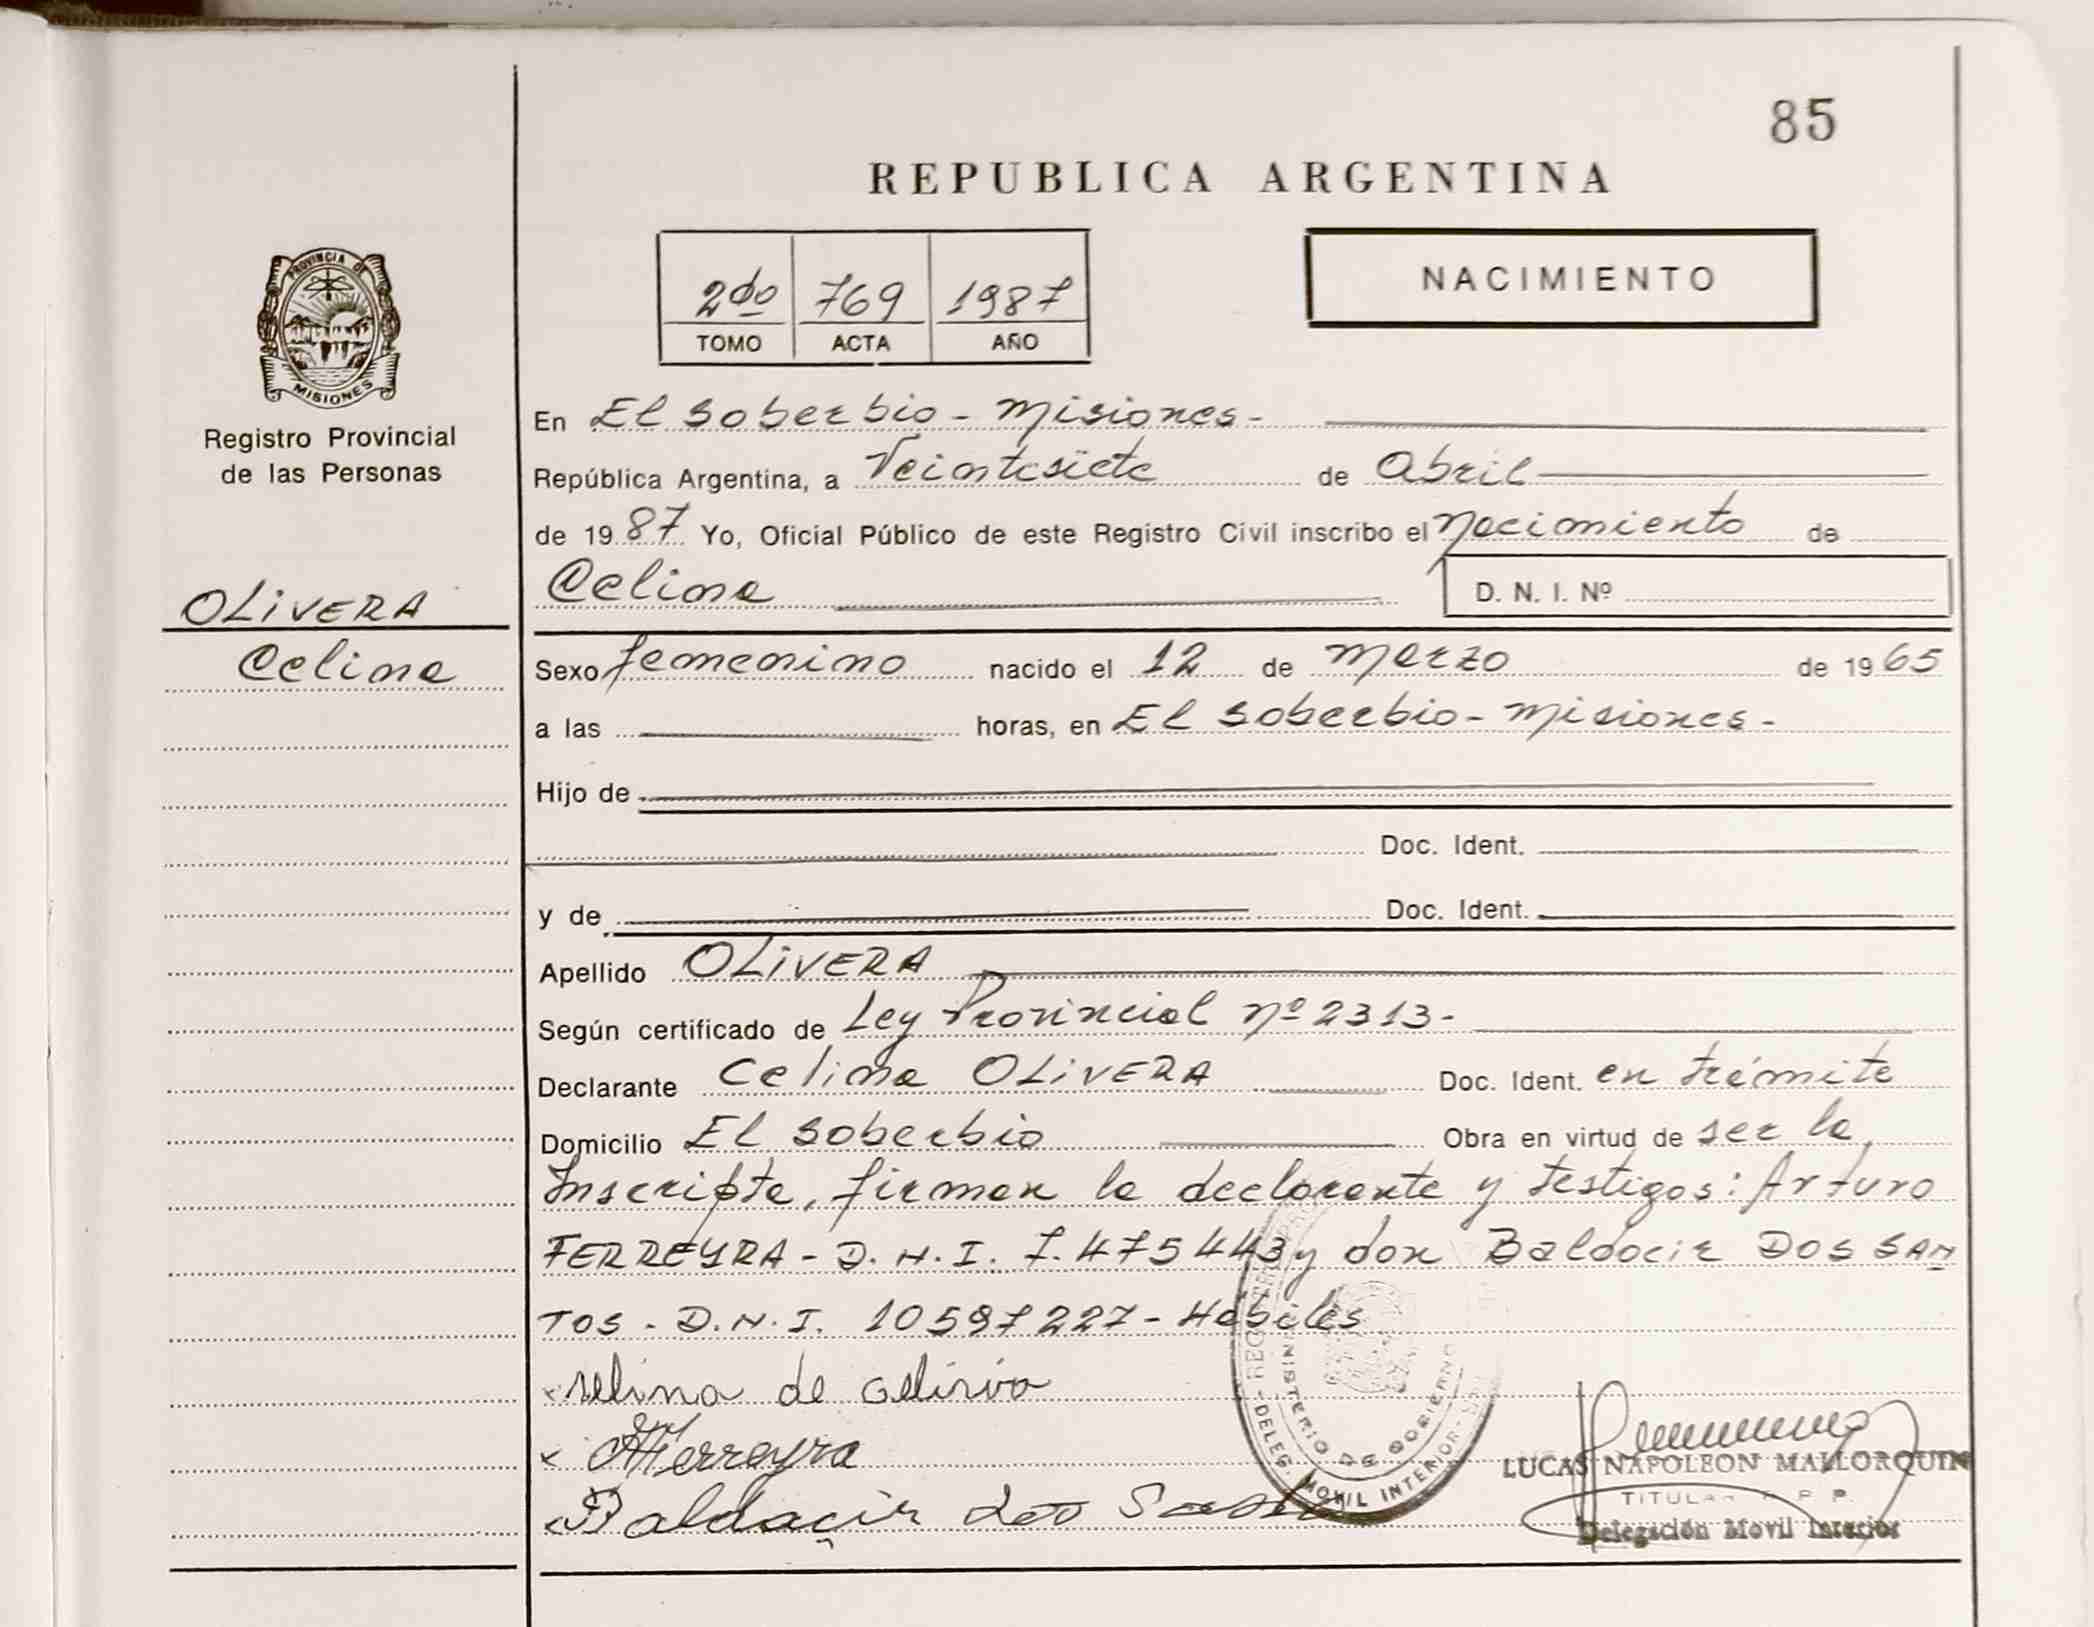 85
REPUBLICA ARGENTINA
2do 769 1987
TOMO ACTA AÑO
NACIMIENTO
PROVINCIA DE
MISIONES
Registro Provincial
de las Personas
OLIVERA
Celina
En El soberbio - misiones -
República Argentina, a Veintesiete de Abril
de 1987 Yo, Oficial Público de este Registro Civil inscribo el nacimiento de
Celina D. N. I. Nº
Sexo femenino nacido el 12 de marzo de 1965
a las horas, en El soberbio - misiones -
Hijo de
Doc. Ident.
y de Doc. Ident.
Apellido OLIVERA
Según certificado de Ley Provincial nº 2313 -
Declarante Celina OLIVERA Doc. Ident. en trámite
Domicilio El soberbio Obra en virtud de ser la
Inscripta, firman la declarante y testigos: Arturo
FERREYRA - D.N.I. 7.475443 y don Baldocir DOS SAN
TOS - D.N.I. 10597227 - Habiles
x selina de olivia
x Ferreyra
x Baldaçir
MINISTERIO DE GOBIERNO
DELEG. MOVIL INTERIOR
LUCAS NAPOLEON MALLORQUIN
TITULAR R P P.
Delegación Movil Interior